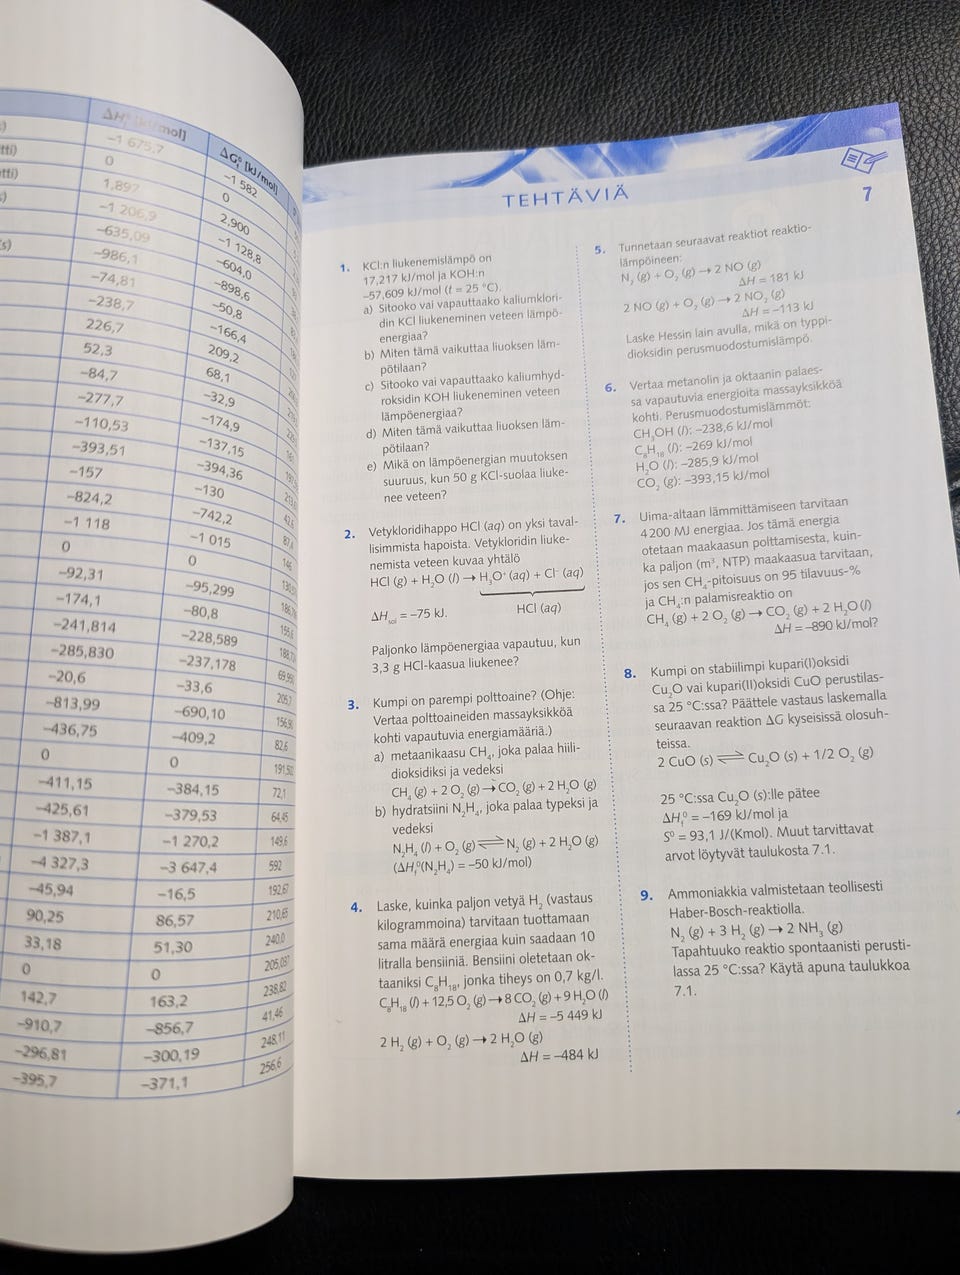 ΔH°f [kJ/mol] ΔG°f [kJ/mol]
s) −1 675,7 −1 582
tti) 0 0
tti) 1,897 2,900
s) −1 206,9 −1 128,8
−635,09 −604,0
(s) −986,1 −898,6
−74,81 −50,8
−238,7 −166,4
226,7 209,2
52,3 68,1
−84,7 −32,9
−277,7 −174,9
−110,53 −137,15
−393,51 −394,36
−157 −130
−824,2 −742,2
−1 118 −1 015
0 0
−92,31 −95,299
−174,1 −80,8
−241,814 −228,589
−285,830 −237,178
−20,6 −33,6
−813,99 −690,10
−436,75 −409,2 82,6
0 0
−411,15 −384,15 72,1
−425,61 −379,53 64,45
−1 387,1 −1 270,2 149,6
−4 327,3 −3 647,4 592
−45,94 −16,5 192,67
90,25 86,57 210,65
33,18 51,30 240,0
0 0
142,7 163,2 238,82
−910,7 −856,7 41,46
−296,81 −300,19 248,11
−395,7 −371,1 256,6
TEHTÄVIÄ
7
1. KCl:n liukenemislämpö on
17,217 kJ/mol ja KOH:n
−57,609 kJ/mol (t = 25 °C).
a) Sitooko vai vapauttaako kaliumklori-
din KCl liukeneminen veteen lämpö-
energiaa?
b) Miten tämä vaikuttaa liuoksen läm-
pötilaan?
c) Sitooko vai vapauttaako kaliumhyd-
roksidin KOH liukeneminen veteen
lämpöenergiaa?
d) Miten tämä vaikuttaa liuoksen läm-
pötilaan?
e) Mikä on lämpöenergian muutoksen
suuruus, kun 50 g KCl-suolaa liuke-
nee veteen?
2. Vetykloridihappo HCl (aq) on yksi taval-
lisimmista hapoista. Vetykloridin liuke-
nemista veteen kuvaa yhtälö
HCl (g) + H₂O (l) → H₃O⁺ (aq) + Cl⁻ (aq)
HCl (aq)
ΔHsol = −75 kJ.
Paljonko lämpöenergiaa vapautuu, kun
3,3 g HCl-kaasua liukenee?
3. Kumpi on parempi polttoaine? (Ohje:
Vertaa polttoaineiden massayksikköä
kohti vapautuvia energiamääriä.)
a) metaanikaasu CH₄, joka palaa hiili-
dioksidiksi ja vedeksi
CH₄ (g) + 2 O₂ (g) → CO₂ (g) + 2 H₂O (g)
b) hydratsiini N₂H₄, joka palaa typeksi ja
vedeksi
N₂H₄ (l) + O₂ (g) ⇌ N₂ (g) + 2 H₂O (g)
(ΔHf°(N₂H₄) = −50 kJ/mol)
4. Laske, kuinka paljon vetyä H₂ (vastaus
kilogrammoina) tarvitaan tuottamaan
sama määrä energiaa kuin saadaan 10
litralla bensiiniä. Bensiini oletetaan ok-
taaniksi C₈H₁₈, jonka tiheys on 0,7 kg/l.
C₈H₁₈ (l) + 12,5 O₂ (g) → 8 CO₂ (g) + 9 H₂O (l)
ΔH = −5 449 kJ
2 H₂ (g) + O₂ (g) → 2 H₂O (g)
ΔH = −484 kJ
5. Tunnetaan seuraavat reaktiot reaktio-
lämpöineen:
N₂ (g) + O₂ (g) → 2 NO (g)
ΔH = 181 kJ
2 NO (g) + O₂ (g) → 2 NO₂ (g)
ΔH = −113 kJ
Laske Hessin lain avulla, mikä on typpi-
dioksidin perusmuodostumislämpö.
6. Vertaa metanolin ja oktaanin palaes-
sa vapautuvia energioita massayksikköä
kohti. Perusmuodostumislämmöt:
CH₃OH (l): −238,6 kJ/mol
C₈H₁₈ (l): −269 kJ/mol
H₂O (l): −285,9 kJ/mol
CO₂ (g): −393,15 kJ/mol
7. Uima-altaan lämmittämiseen tarvitaan
4 200 MJ energiaa. Jos tämä energia
otetaan maakaasun polttamisesta, kuin-
ka paljon (m³, NTP) maakaasua tarvitaan,
jos sen CH₄-pitoisuus on 95 tilavuus-%
ja CH₄:n palamisreaktio on
CH₄ (g) + 2 O₂ (g) → CO₂ (g) + 2 H₂O (l)
ΔH = −890 kJ/mol?
8. Kumpi on stabiilimpi kupari(I)oksidi
Cu₂O vai kupari(II)oksidi CuO perustilas-
sa 25 °C:ssa? Päättele vastaus laskemalla
seuraavan reaktion ΔG kyseisissä olosuh-
teissa.
2 CuO (s) ⇌ Cu₂O (s) + 1/2 O₂ (g)
25 °C:ssa Cu₂O (s):lle pätee
ΔHf° = −169 kJ/mol ja
S° = 93,1 J/(Kmol). Muut tarvittavat
arvot löytyvät taulukosta 7.1.
9. Ammoniakkia valmistetaan teollisesti
Haber-Bosch-reaktiolla.
N₂ (g) + 3 H₂ (g) → 2 NH₃ (g)
Tapahtuuko reaktio spontaanisti perusti-
lassa 25 °C:ssa? Käytä apuna taulukkoa
7.1.